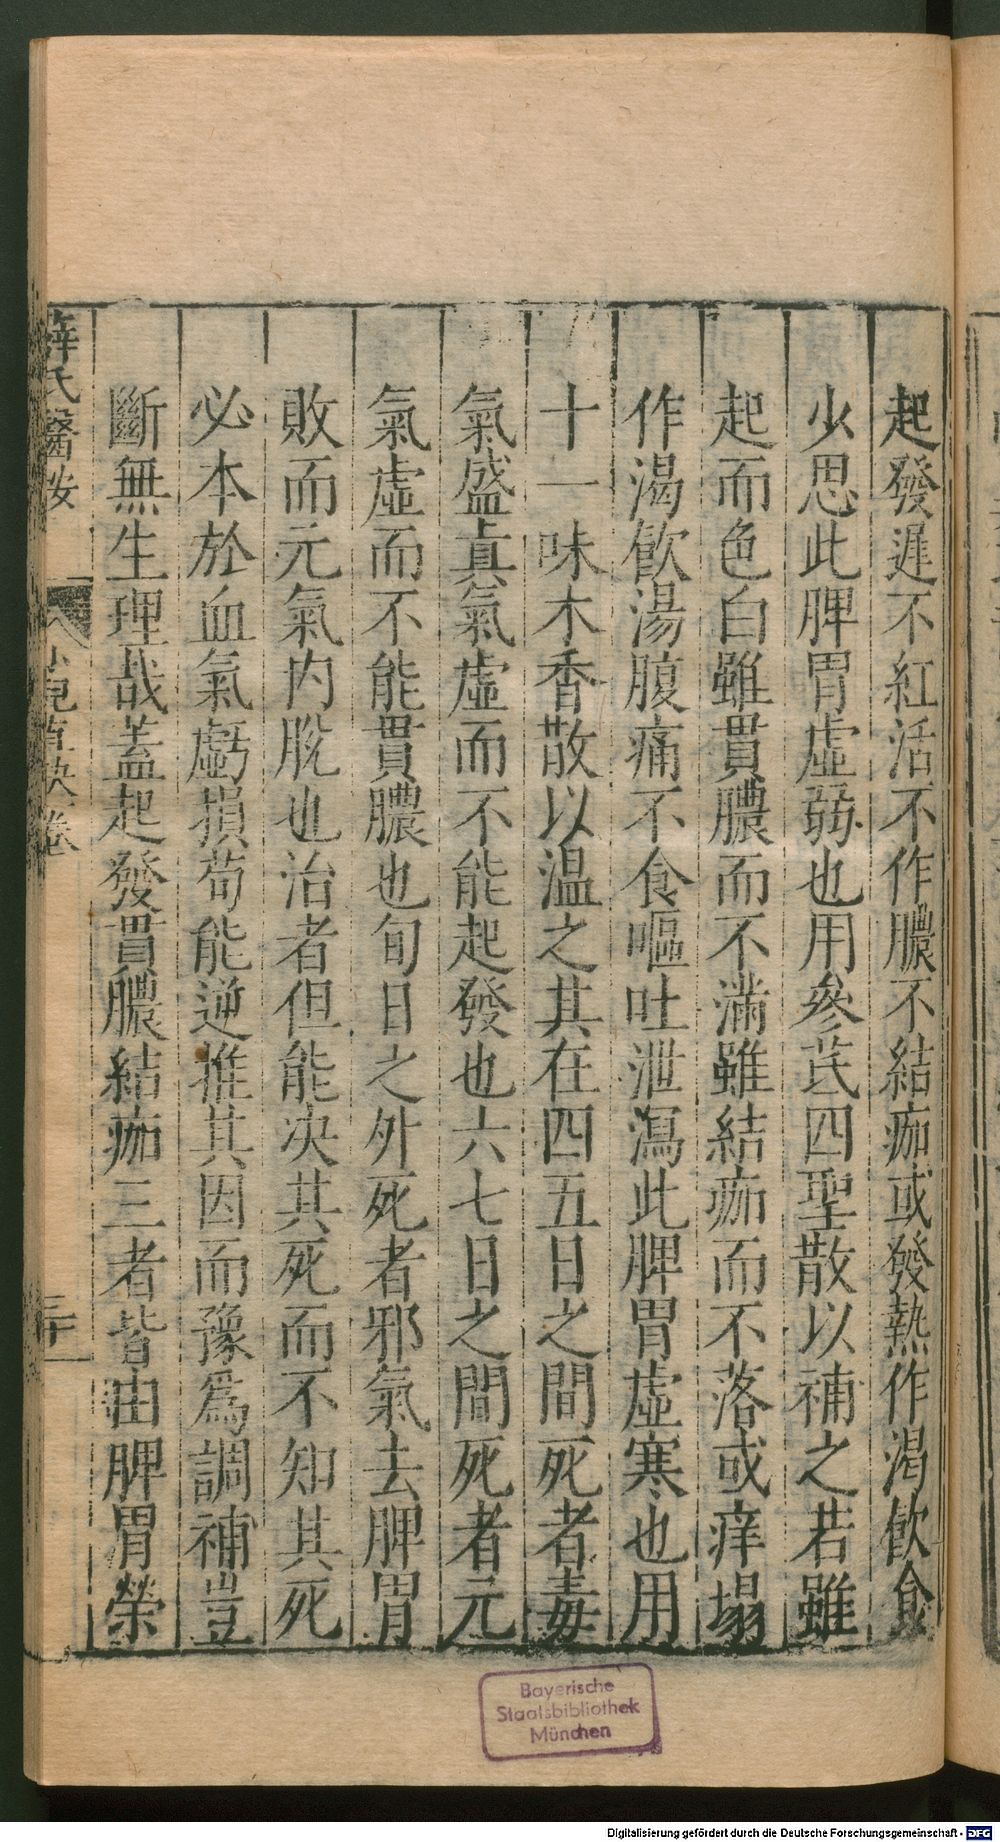 起發遲不紅活不作膿不結痂或發熱作渴飲食
少思此脾胃虛弱也用參芪四聖散以補之若雖
起而色白雖貫膿而不滿雖結痂而不落或痒塌
作渴飲湯腹痛不食嘔吐泄瀉此脾胃虛寒也用
十一味木香散以温之其在四五日之間死者毒
氣盛真氣虛而不能起發也六七日之間死者元
氣虛而不能貫膿也旬日之外死者邪氣去脾胃
敗而元氣内脫也治者但能决其死而不知其死
必本於血氣虧損苟能逆推其因而豫爲調補豈
斷無生理哉蓋起發貫膿結痂三者皆由脾胃榮
薛氏醫按
Bayerische
Staatsbibliothek
München
Digitalisierung gefördert durch die Deutsche Forschungsgemeinschaft - DFG